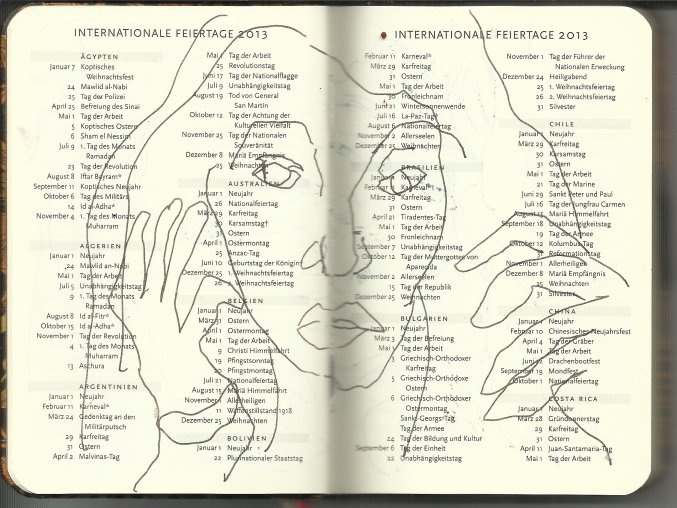 INTERNATIONALE FEIERTAGE 2013
ÄGYPTEN
Januar 7 Koptisches
Weihnachtsfest
24 Mawlid al-Nabi
25 Tag der Polizei
April 25 Befreiung des Sinai
Mai 1 Tag der Arbeit
5 Koptisches Ostern
6 Sham el Nessim
Juli 9 1. Tag des Monats
Ramadan
23 Tag der Revolution
August 8 Iftar Bayram*
September 11 Koptisches Neujahr
Oktober 6 Tag des Militärs
14 Id al-Adha*
November 4 1. Tag des Monats
Muharram
ALGERIEN
Januar 1 Neujahr
24 Mawlid an-Nabi
Mai 1 Tag der Arbeit
Juli 5 Unabhängigkeitstag
9 1. Tag des Monats
Ramadan
August 8 Id al-Fitr*
Oktober 15 Id al-Adha*
November 1 Tag der Revolution
4 1. Tag des Monats
Muharram
13 Aschura
ARGENTINIEN
Januar 1 Neujahr
Februar 11 Karneval*
März 24 Gedenktag an den
Militärputsch
29 Karfreitag
31 Ostern
April 2 Malvinas-Tag
Mai 1 Tag der Arbeit
25 Revolutionstag
Juni 17 Tag der Nationalflagge
Juli 9 Unabhängigkeitstag
August 19 Tod von General
San Martin
Oktober 12 Tag der Achtung der
Kulturellen Vielfalt
November 25 Tag der Nationalen
Souveränität
Dezember 8 Mariä Empfängnis
25 Weihnachten
AUSTRALIEN
Januar 1 Neujahr
26 Nationalfeiertag
März 29 Karfreitag
30 Karsamstag*
31 Ostern
April 1 Ostermontag
25 Anzac-Tag
Juni 10 Geburtstag der Königin*
Dezember 25 1. Weihnachtsfeiertag
26 2. Weihnachtsfeiertag
BELGIEN
Januar 1 Neujahr
März 31 Ostern
April 1 Ostermontag
Mai 1 Tag der Arbeit
9 Christi Himmelfahrt
19 Pfingstsonntag
20 Pfingstmontag
Juli 21 Nationalfeiertag
August 15 Mariä Himmelfahrt
November 1 Allerheiligen
11 Waffenstillstand 1918
Dezember 25 Weihnachten
BOLIVIEN
Januar 1 Neujahr
22 Plurinationaler Staatstag
INTERNATIONALE FEIERTAGE 2013
Februar 11 Karneval*
März 29 Karfreitag
31 Ostern
Mai 1 Tag der Arbeit
30 Fronleichnam
Juni 21 Wintersonnenwende
Juli 16 La-Paz-Tag*
August 6 Nationalfeiertag
November 2 Allerseelen
Dezember 25 Weihnachten
BRASILIEN
Januar 1 Neujahr
Februar 12 Karneval*
März 29 Karfreitag
31 Ostern
April 21 Tiradentes-Tag
Mai 1 Tag der Arbeit
30 Fronleichnam
September 7 Unabhängigkeitstag
Oktober 12 Tag der Muttergottes von
Aparecida
November 2 Allerseelen
15 Tag der Republik
Dezember 25 Weihnachten
BULGARIEN
Januar 1 Neujahr
März 3 Tag der Befreiung
Mai 1 Tag der Arbeit
3 Griechisch-Orthodoxer
Karfreitag
5 Griechisch-Orthodoxer
Ostern
6 Griechisch-Orthodoxer
Ostermontag
Sankt-Georgs-Tag
Tag der Armee
24 Tag der Bildung und Kultur
September 6 Tag der Einheit
22 Unabhängigkeitstag
November 1 Tag der Führer der
Nationalen Erweckung
Dezember 24 Heiligabend
25 1. Weihnachtsfeiertag
26 2. Weihnachtsfeiertag
31 Silvester
CHILE
Januar 1 Neujahr
März 29 Karfreitag
30 Karsamstag
31 Ostern
Mai 1 Tag der Arbeit
21 Tag der Marine
Juni 29 Sankt Peter und Paul
Juli 16 Tag der Jungfrau Carmen
August 15 Mariä Himmelfahrt
September 18 Unabhängigkeitstag
19 Tag der Armee
Oktober 12 Kolumbus-Tag
31 Reformationstag
November 1 Allerheiligen
Dezember 8 Mariä Empfängnis
25 Weihnachten
31 Silvester
CHINA
Januar 1 Neujahr
Februar 10 Chinesisches Neujahrsfest
April 4 Tag der Gräber
Mai 1 Tag der Arbeit
Juni 12 Drachenbootfest
September 19 Mondfest
Oktober 1 Nationalfeiertag
COSTA RICA
Januar 1 Neujahr
März 28 Gründonnerstag
29 Karfreitag
31 Ostern
April 11 Juan-Santamaria-Tag
Mai 1 Tag der Arbeit